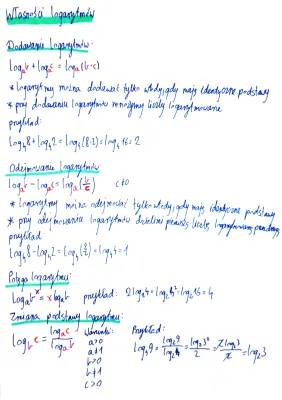 Własności logarytmów
Dodawanie logarytmów:
log_a b + log_a c = log_a (b·c)
* logarytmy można dodawać tylko wtedy, gdy mają identyczne podstawy
* przy dodawaniu logarytmów mnożymy liczby logarytmowane
przykład:
log_4 8 + log_4 2 = log_4 (8·2) = log_4 16 = 2
Odejmowanie logarytmów
log_a b - log_a c = log_a (b/c) c≠0
* logarytmy można odejmować tylko wtedy, gdy mają identyczne podstawy
* przy odejmowaniu logarytmów dzielimy pierwszą liczbę logarytmowaną przez drugą
przykład
log_4 8 - log_4 2 = log_4 (8/2) = log_4 4 = 1
Potęga logarytmu:
log_a b^x = x log_a b przykład: 2 log_2 4 = log_2 4^2 = log_2 16 = 4
Zmiana podstawy logarytmu:
log_b c = log_a c / log_a b Warunki: Przykład:
a>0 log_4 9 = log_2 9 / log_2 4 = log_2 3^2 / 2 = 2 log_2 3 / 2 = log_2 3
a≠1
b>0
b≠1
c>0